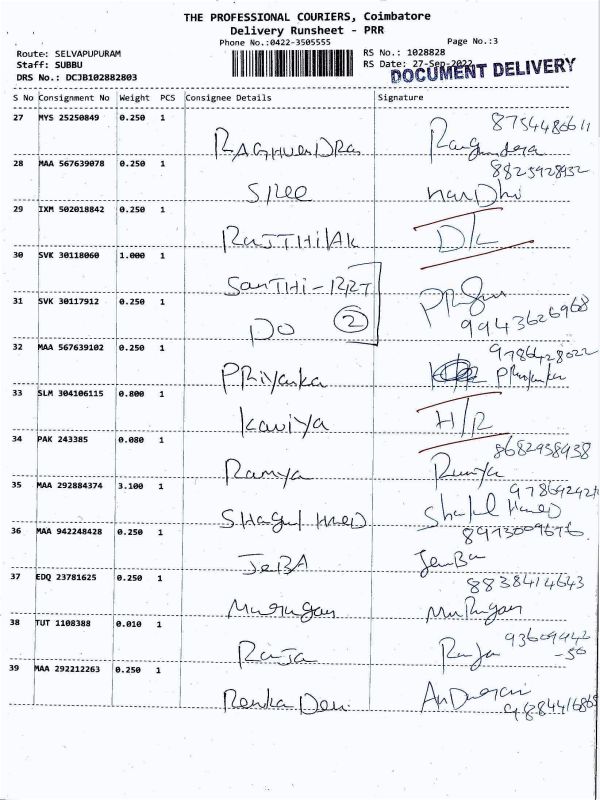 THE PROFESSIONAL COURIERS, Coimbatore
Delivery Runsheet - PRR
Phone No.:0422-3505555
Page No.:3
Route: SELVAPUPURAM
RS No.: 1028828
Staff: SUBBU
RS Date: 27-Sep-2022
DRS No.: DCJB102882803
DOCUMENT DELIVERY
S No Consignment No Weight PCS Consignee Details Signature
27 MYS 25250849 0.250 1
8754486611
RAGHUENDRA
28 MAA 567639078 0.250 1
8825928932
SREE nanDhi
29 IXM 502018842 0.250 1
RAJTHILAK D/L
30 SVK 30118060 1.000 1
SanTHI - RRT
31 SVK 30117912 0.250 1
DO 2 9943626968
32 MAA 567639102 0.250 1
9786428022
PRiyanka PRiyanka
33 SLM 304106115 0.800 1
Kaviya H/R
34 PAK 243385 0.080 1
8682958938
Ramya Ramya
35 MAA 292884374 3.100 1
SHAGUL HMED
36 MAA 942248428 0.250 1
JeBA
37 EDQ 23781625 0.250 1
8838414643
Murugan MuRugan
38 TUT 1108388 0.010 1
93609942
-50
Raja Raja
39 MAA 292212263 0.250 1
Renka Devi